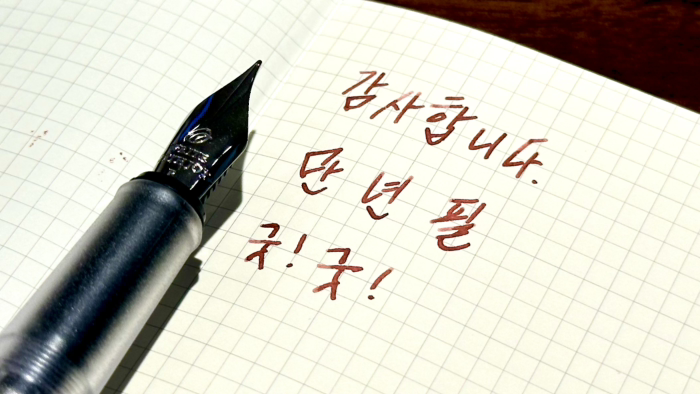 감사합니다.
만년필
굿! 굿!